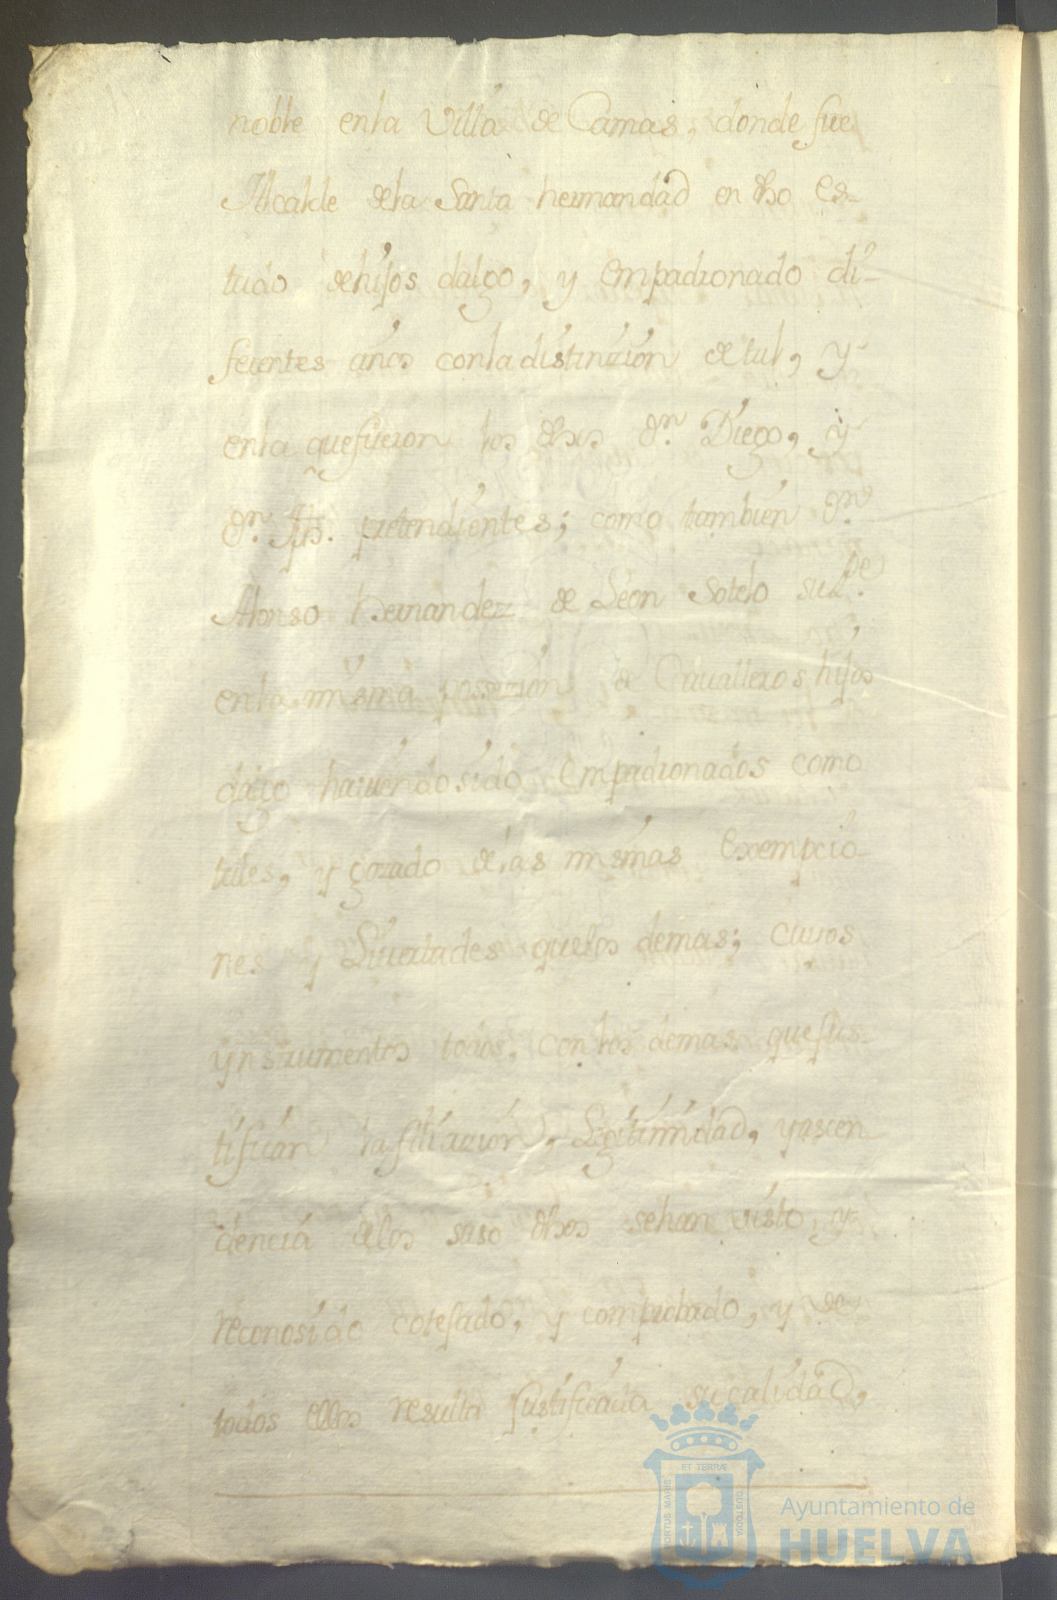 noble enla Villa de Camas, donde fue
Alcalde dela Santa hermandad en dho Es-
tado dehijos dalgo, y Empadronado di-
ferentes años conladistinzion de tal, y
enla quefueron los dhos Dn. Diego, y
Dn. pretendientes; como tambien Dn.
Alonso Hernandez de Leon Sotelo su Pe.
enla misma possezion de Cavalleros hijos
dalgo haviendosido Empadronados como
tales, y gozado delas mismas Exempcio-
nes y Livertades quelos demas; cuios
ynstrumentos todos, con los demas quejus-
tifican lafiliazion, Legitimidad, yascen
dencia delos suso dhos sehan visto, y
reconosido cotejado, y comprobado, y de
todos ellos resulta justificada sucalidad,
ET TERRÆ
PORTUS MARIS
CUSTODIA
Ayuntamiento de
HUELVA